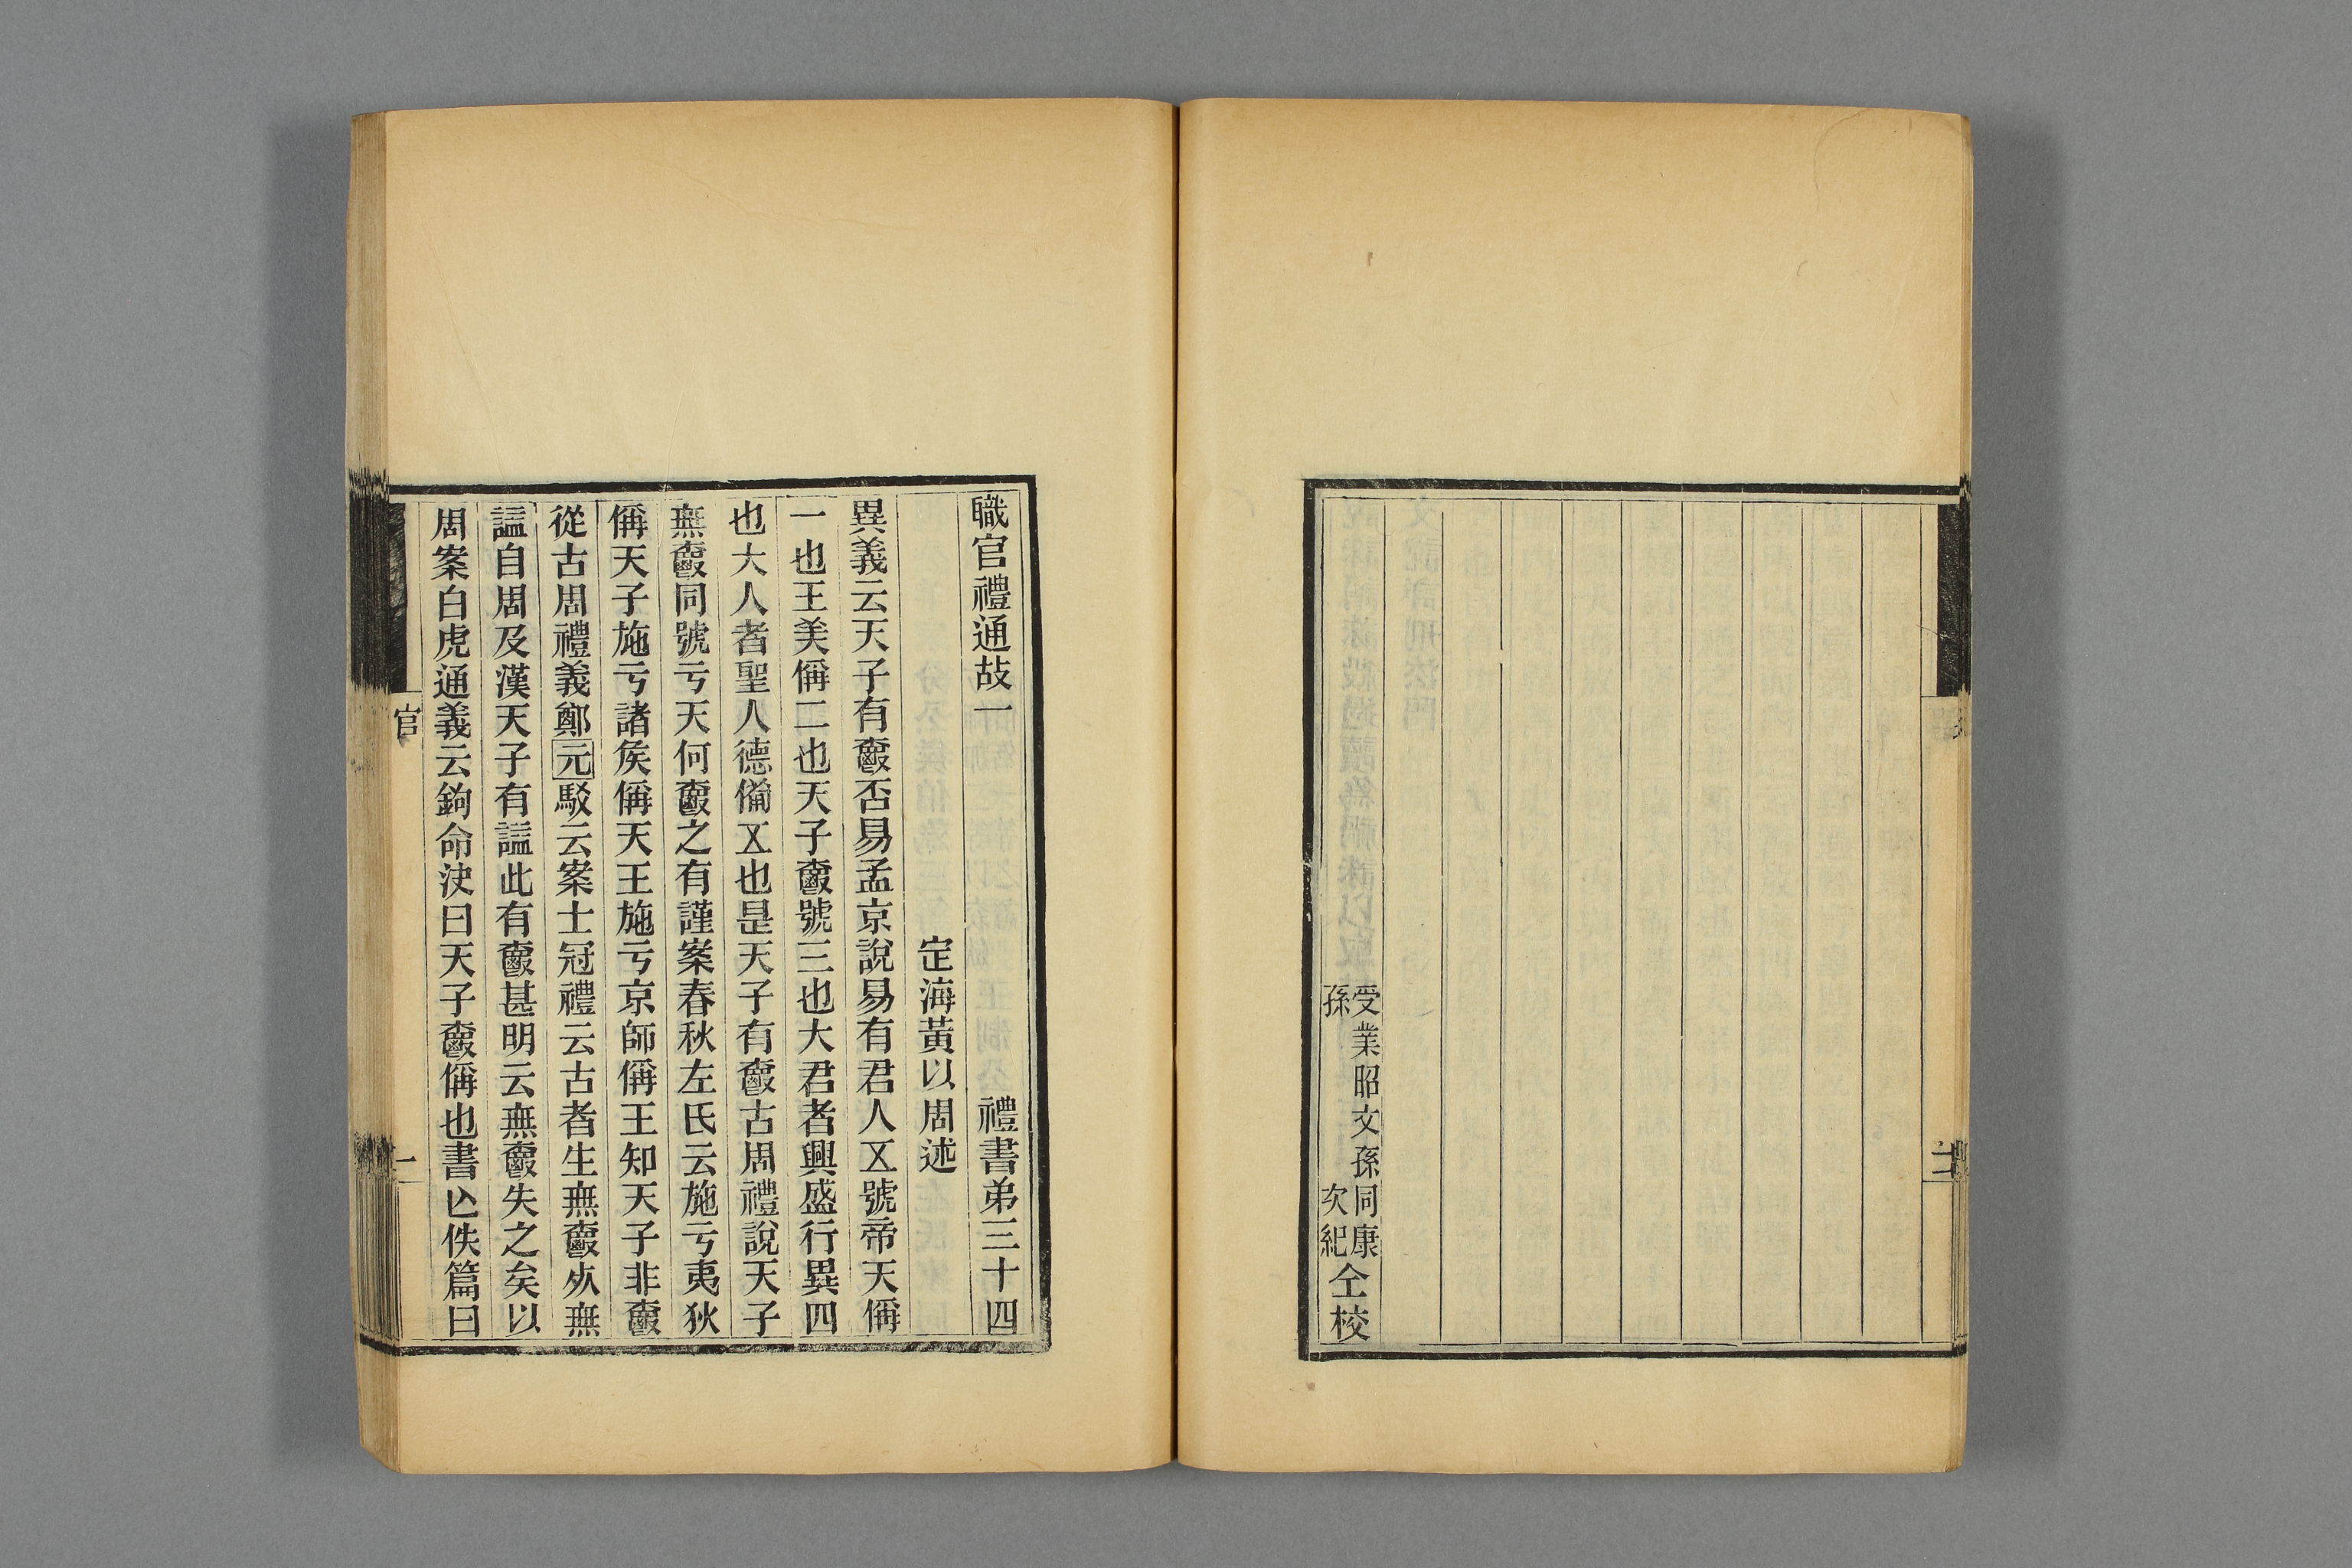 受業昭文孫同康
孫　次紀
仝校
職官禮通故一　禮書弟三十四
定海黃以周述
異義云天子有爵否易孟京說易有君人㐅號帝天偁
一也王美偁二也天子爵號三也大君者興盛行異四
也大人者聖人德僃㐅也是天子有爵古周禮說天子
無爵同號亏天何爵之有謹案春秋左氏云施亏夷狄
偁天子施亏諸矦偁天王施亏京師偁王知天子非爵
從古周禮義鄭元駁云案士冠禮云古者生無爵死無
諡自周及漢天子有諡此有爵甚明云無爵失之矣以
周案白虎通義云鉤命決曰天子爵偁也書亾佚篇曰
官
一